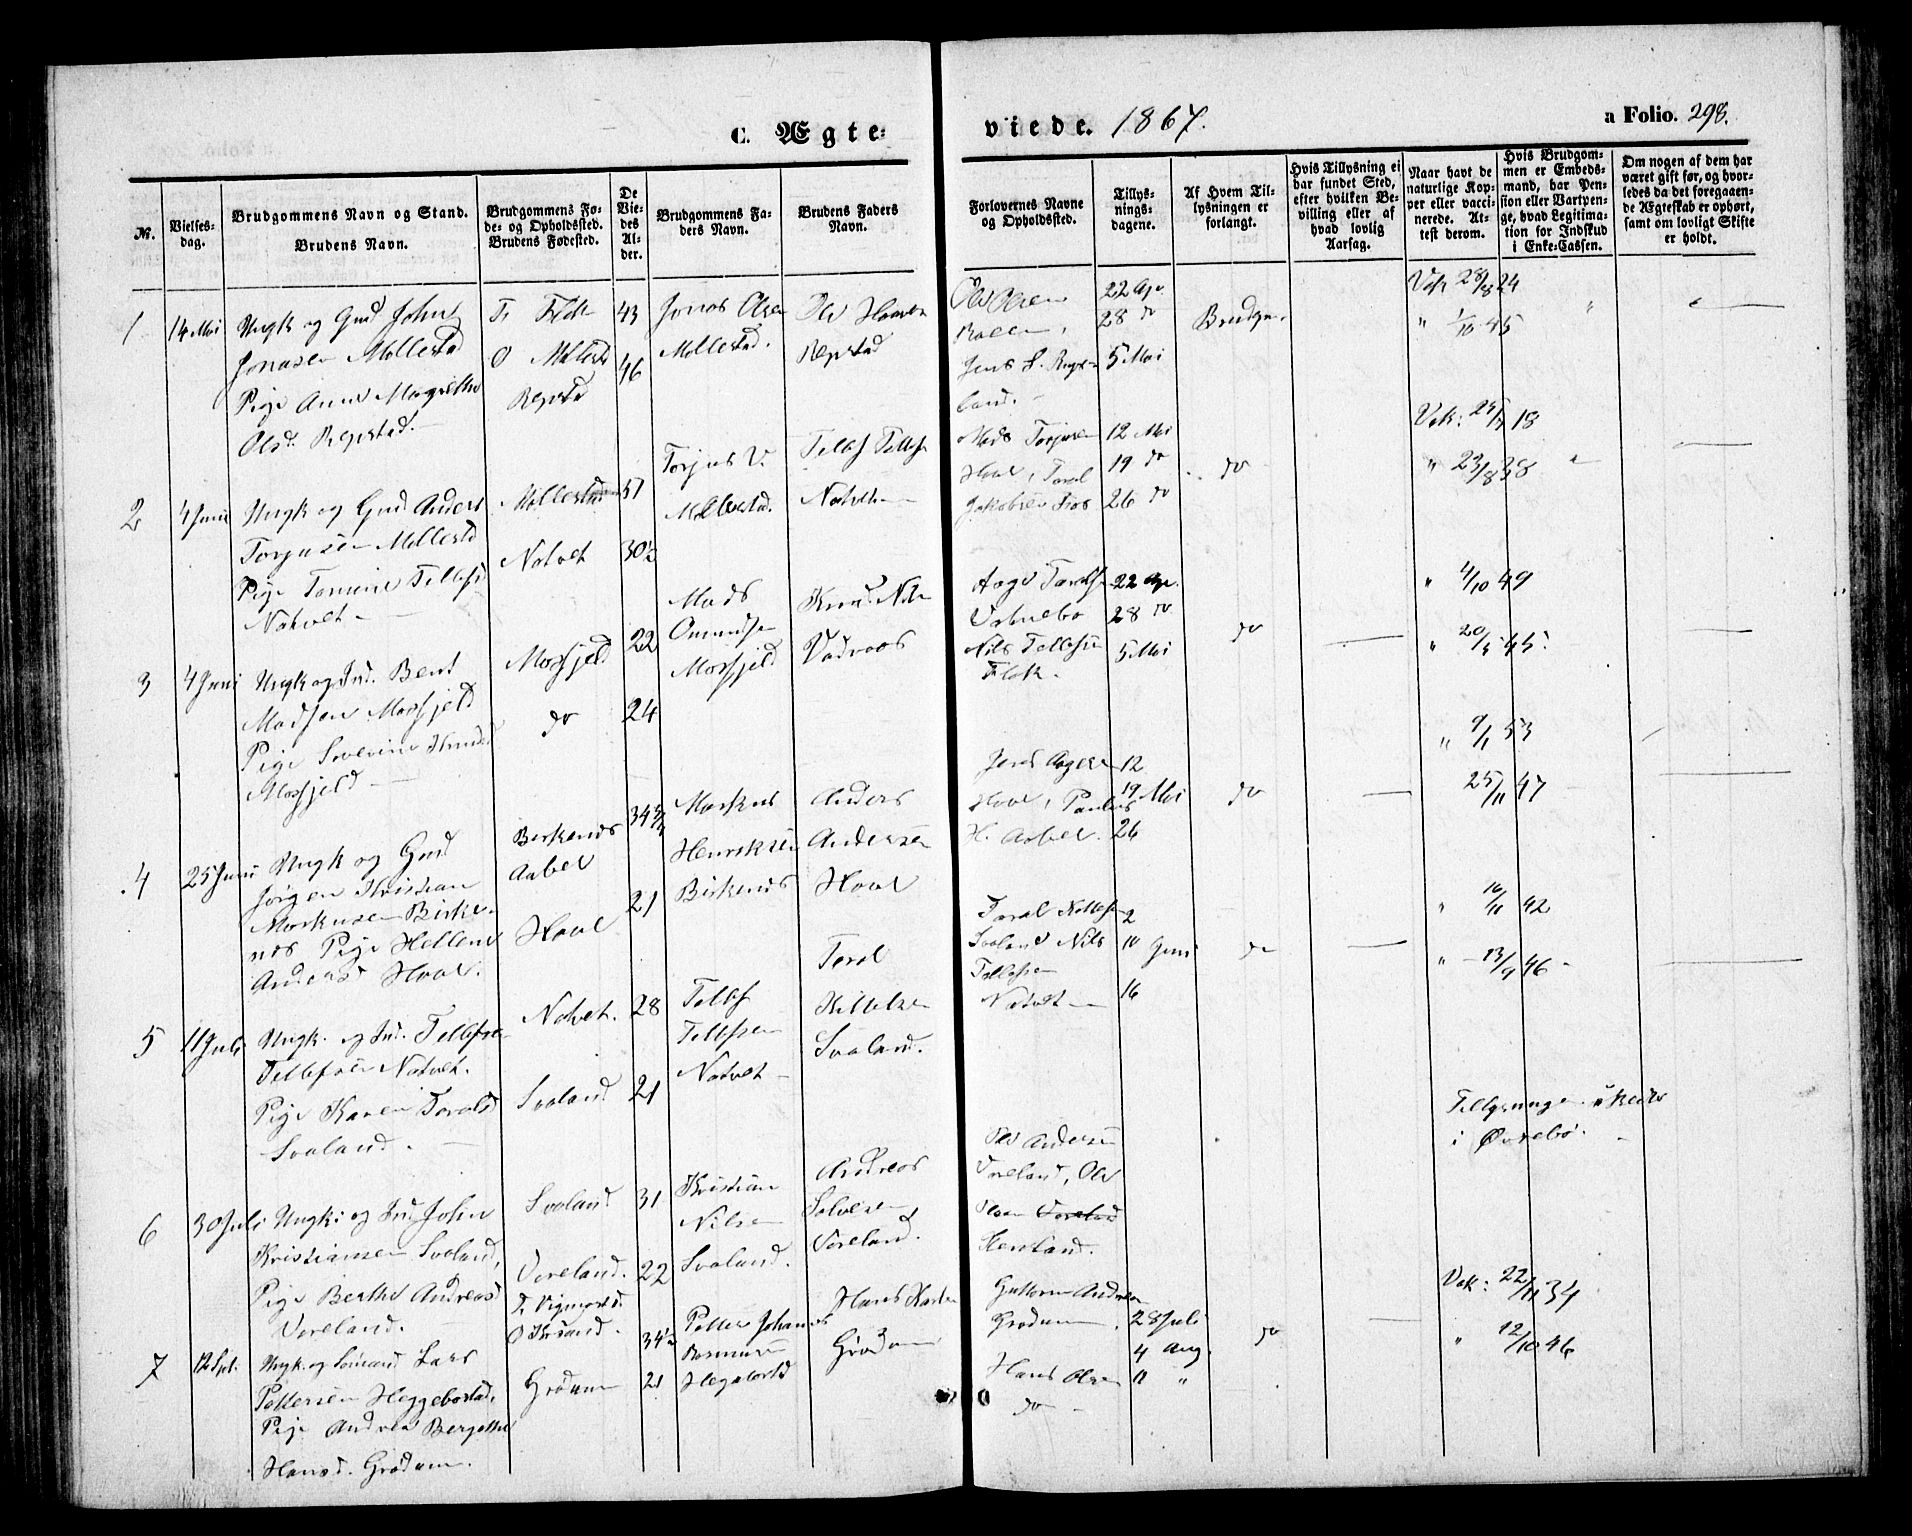 C. Ægte-
viede. 1867.
a Folio. 298.
No.
Vielses-
dag.
Brudgommens Navn og Stand.
Brudens Navn.
Brudgommens Fø-
de- og Opholdssted.
Brudens Fødested.
De
Vie-
des
Al-
der.
Brudgommens Fa-
ders Navn.
Brudens Faders
Navn.
Forlovernes Navne
og Opholdssted.
Tillys-
nings-
dagene.
Af Hvem Til-
lysningen er
forlangt.
Hvis Tillysning ei
har fundet Sted,
efter hvilken Be-
villing eller af
hvad lovlig
Aarsag.
Naar havt de
naturlige Kop-
per eller vacci-
nerede. At-
test derom.
Hvis Brudgom-
men er Embeds-
mand, har Pen-
sion eller Vartpen-
ge, hvad Legitima-
tion for Indskud
i Enke-Cassen.
Om nogen af dem har
været gift før, og hvor-
ledes da det foregaaen-
de Ægteskab er ophørt,
samt om lovligt Skifte
er holdt.
1
14 Mai
Ungk og Gmd John
Jonasen Mollestad
Pige Anne Magrethe
Olsd. Repstad.
F. Flak
O Mollest
Repsta
43
46
Jonas Olsen
Mollestad.
Ole
Repstad
Ole Olsen
Jens
land.
22 Apr.
28 do
5 Mai
Brudg.
Vak 28/8 24
" 1/10 45
2
4 Juni
Ungk og Gmd Anders
Torjusen Mollestd
Pige Tomine Tellefsd
Natvet
Mollestad
Natvet
51
30½
Torjus
Mollestad.
Tellef Tellefse
Natvet
Mads Torjusen
Hoal, Taral
Jakobsen
12 Mai
19 do
26 do
do
Vak: 25/7 18
" 23/8 38
3
4 Juni
Ungk og Ind. Bent
Madsen Mosfjeld
Pige Severine Knuds
Mosfjeld
Mosfjeld
do
22
24
Mads
Omundse
Mosfjeld
Knud Nils
Aage Taralse
Vatnebo
Nils Tellefsen
Flak.
22 Apr.
28 do
5 Mai
do
" 4/10 49
" 20/5 45.
4
25 Juni
Ungk og Gmd
Jørgen Kristian
Markusen Birke-
nes Pige Hellene
Andersd Hoal.
Birkenes
Aabel
Hoal
34
21
Markus
Henriksen
Birkenes
Anders
Andersen
Hoal
Jens Aagesen
Hoal, Paulus
H. Aabel.
12
19 Mai
26
do
" 9/1 53
25/11 47
5
11 Juli
Ungk. og Ind. Tellef
Tellefsen Natvet.
Pige Karen Tarald
Svaland.
Natvet.
Svaland
28
21
Tellef
Tellefsen
Natvet
Taral
Kittelsen
Svaland.
Taral
Svaland Nils
Tellefsen
Natvet
2
10 Juni
16
do
" 16/11 42
" 13/9 46
6
30 Juli
Ungk. og Ind John
Kristiansen Svaland,
Pige Berthe Andreasd
Voreland.
Svaland
Voreland.
31
22
Kristian
Nilsen
Svaland.
Andreas
Salvesen
Voreland.
Ole Andersen
Voreland, Ole
Olsen Voreland
Tillysningen skede
i Øvrebø.
7
12 Spt.
Ungk. og Sømand Lars
Pettersen Heggebostad,
Pige Andrea Bergethe
Hansd. Grødum.
F. Vigmostd.
O Krsand.
Grødum
34½
21
Petter Johannes
Rasmusen
Hegebostd
Hans
Grødum
Guttorm Andersen
Grødum.
Hans Olsen
do
28 Juli
4 Aug.
11 "
do
Vak: 22/11 34
" 12/10 46